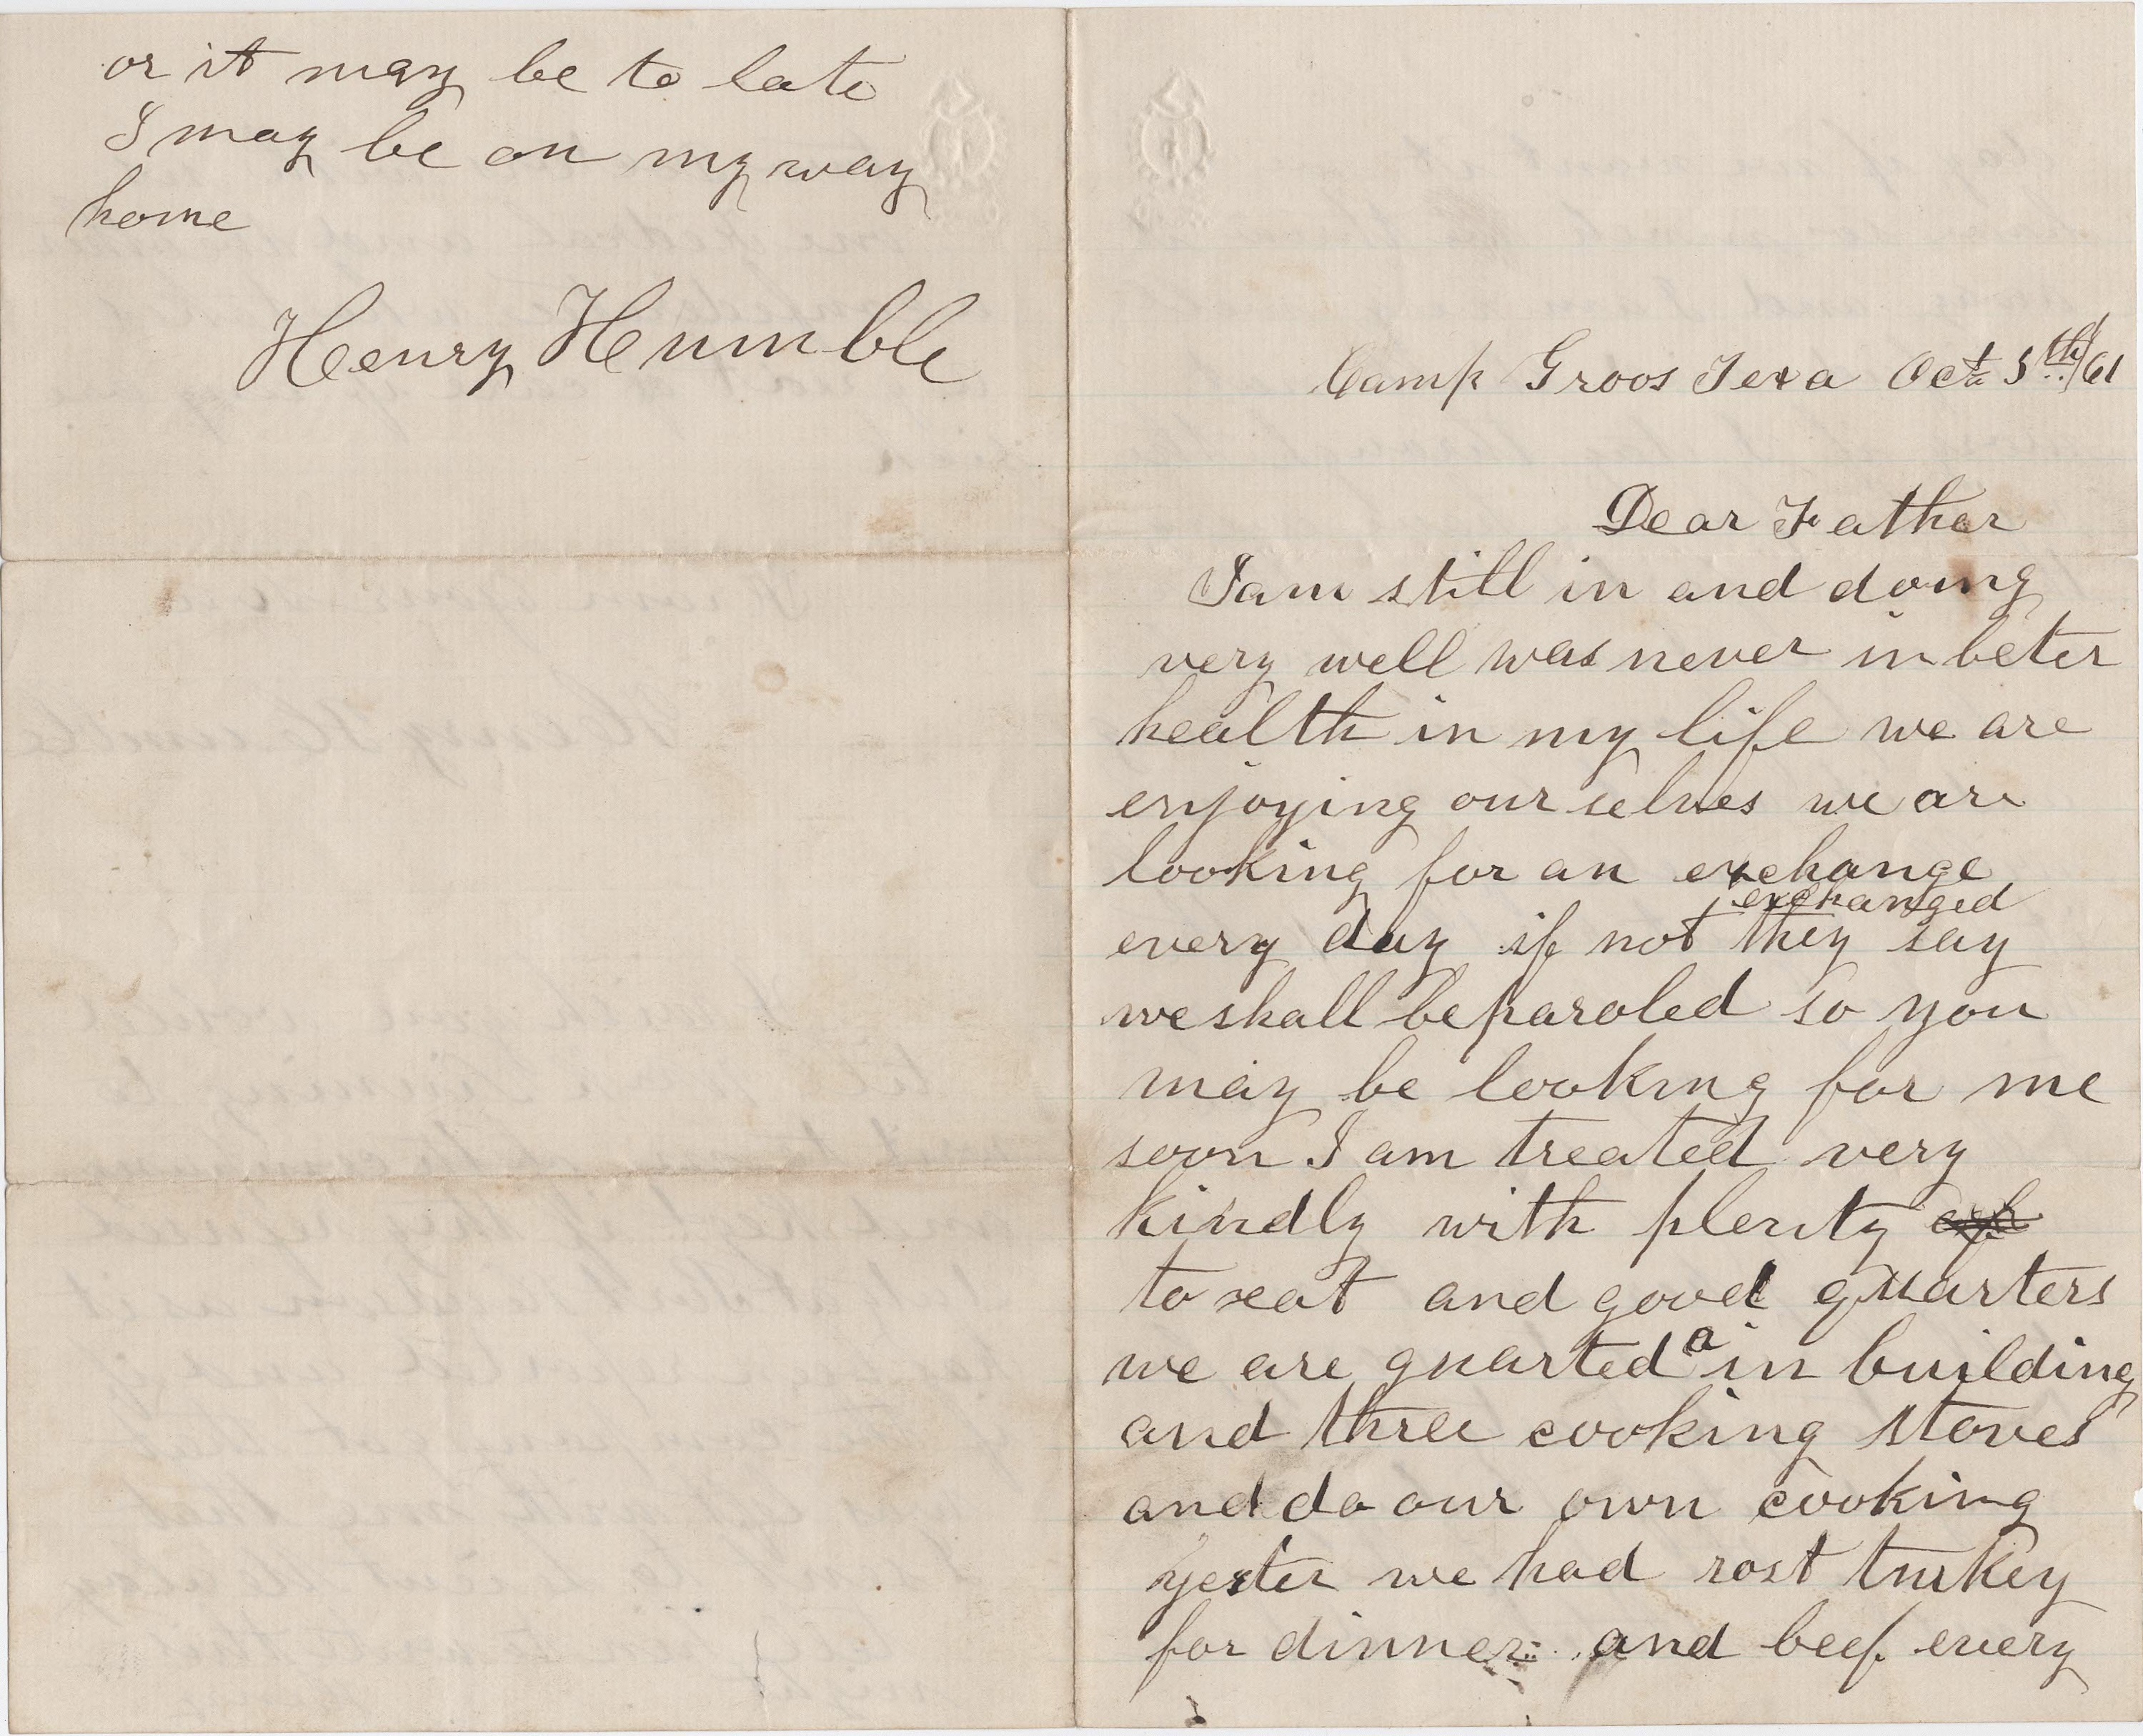 Camp Groos Texa Oct 5th/61
Dear Father
I am still in and doing
very well was never in beter
health in my life we are
enjoying our selves we are
looking for an exchange
exchanged
every day if not they say
we shall be paroled so you
may be looking for me
soon I am treated very
kindly with plenty of
to eat and good quarters
we are quarted a in building
and three cooking stoves
and do our own cooking
yester we had rost turkey
for dinner and beef every
or it may be to late
I may be on my way
home
Henry Humble